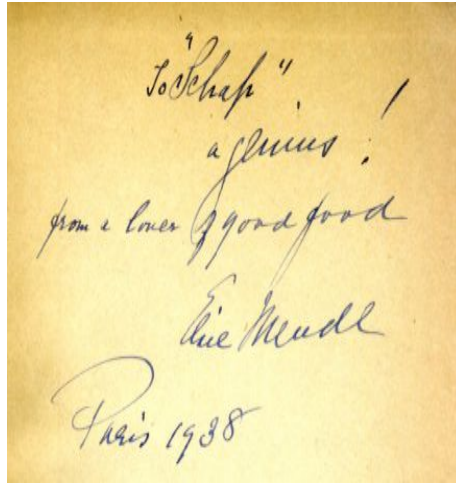 To "Schap"
a genius!
from a lover of good food
Elsie Mendl
Paris 1938